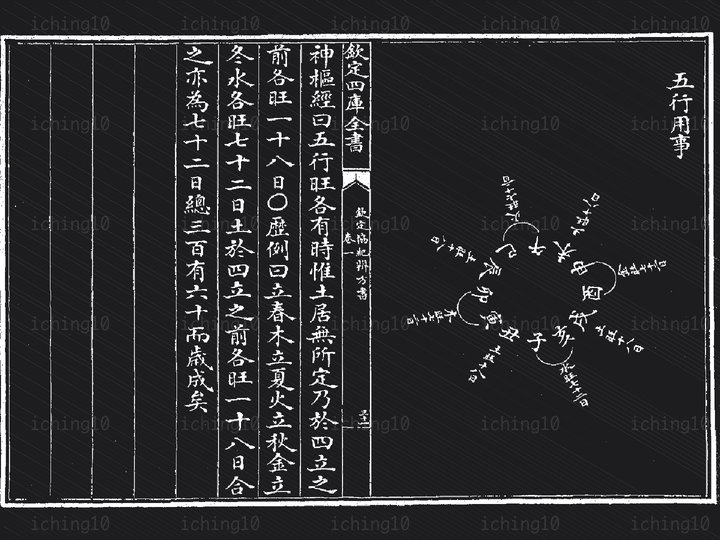 五行用事
巳
午
未
申
酉
戌
亥
子
丑
寅
卯
辰
水旺七十二日
欽定四庫全書
欽定協紀辨方書
卷一
神樞經曰五行旺各有時惟土居無所定乃於四立之
前各旺一十八日〇歷例曰立春木立夏火立秋金立
冬水各旺七十二日土於四立之前各旺一十八日合
之亦為七十二日總三百有六十而歲成矣
iching10